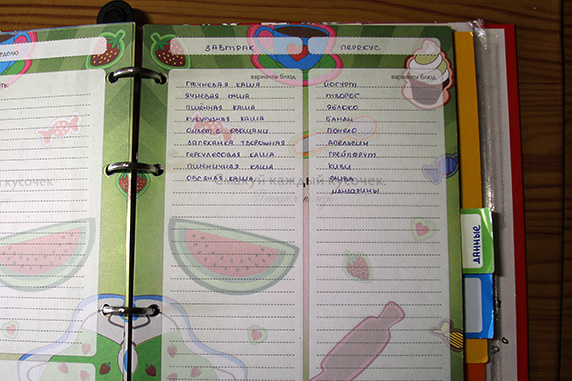 ЗАВТРАК
варианты блюд
ГРЕЧНЕВАЯ КАША
ЯЧНЕВАЯ КАША
ПШЁННАЯ КАША
КУКУРУЗНАЯ КАША
ОМЛЕТ С ОВОЩАМИ
ЗАПЕКАНКА ТВОРОЖНАЯ
ГЕРКУЛЕСОВАЯ КАША
ПШЕНИЧНАЯ КАША
ОВСЯНАЯ КАША
ПЕРЕКУС
варианты блюд
ЙОГУРТ
ТВОРОГ
ЯБЛОКО
БАНАН
ПОМЕЛО
АПЕЛЬСИН
ГРЕЙПФРУТ
КИВИ
СЛИВА
МАНДАРИНЫ
Смакуй каждый кусочек.
кусочек
ДАННЫЕ